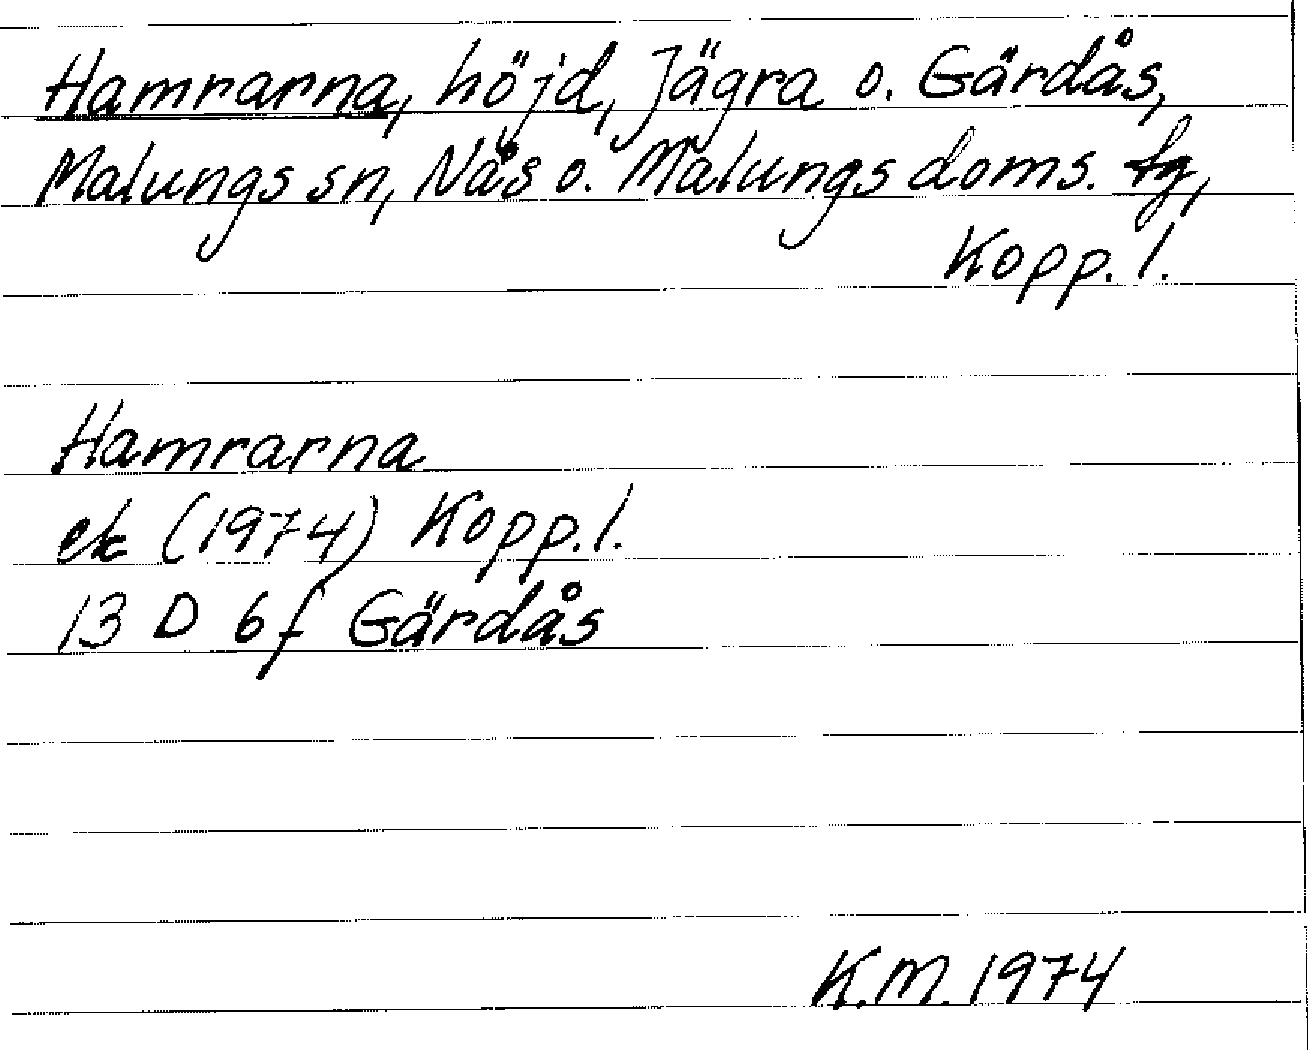 Hamrarna, höjd, Jägra o. Gärdås,
Malungs sn, Nås o. Malungs doms. tg,
Kopp. l.
Hamrarna
ek (1974) Kopp. l.
13 D 6f Gärdås
K.M. 1974